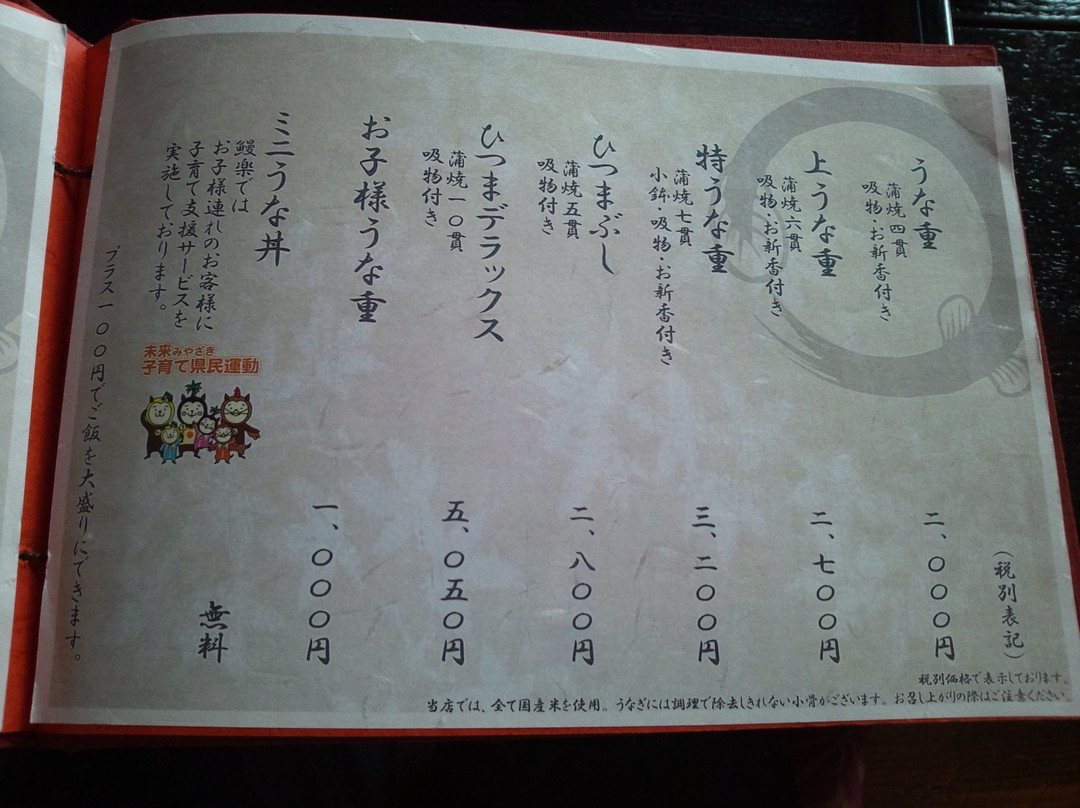 (税別表記)
うな重
蒲焼四貫
吸物・お新香付き
二、〇〇〇円
上うな重
蒲焼六貫
吸物・お新香付き
二、七〇〇円
特うな重
蒲焼七貫
小鉢・吸物・お新香付き
三、二〇〇円
ひつまぶし
蒲焼五貫
吸物付き
二、八〇〇円
ひつまデラックス
蒲焼一〇貫
吸物付き
五、〇五〇円
お子様うな重
一、〇〇〇円
ミニうな丼
鰻楽では
お子様連れのお客様に
子育て支援サービスを
実施しております。
無料
未来みやざき
子育て県民運動
プラス一〇〇円でご飯を大盛りにできます。
税別価格で表示しております。
当店では、全て国産米を使用。うなぎには調理で除去しきれない小骨がございます。お召し上がりの際はご注意ください。